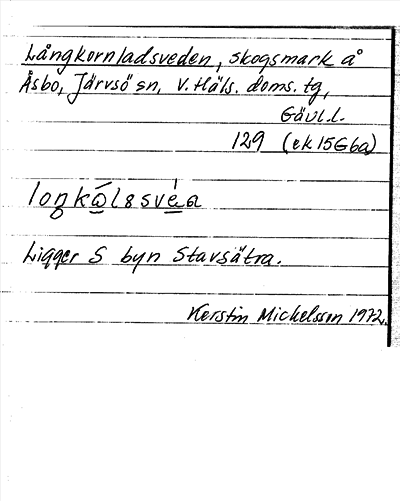 Långkornladsveden, skogsmark å
Åsbo, Järvsö sn, V. Häls. doms. tg,
Gävl. l.
129 (ek 15G6a)
loŋkålssvéa
Ligger S byn Stavsätra.
Kerstin Mickelsson 1972.